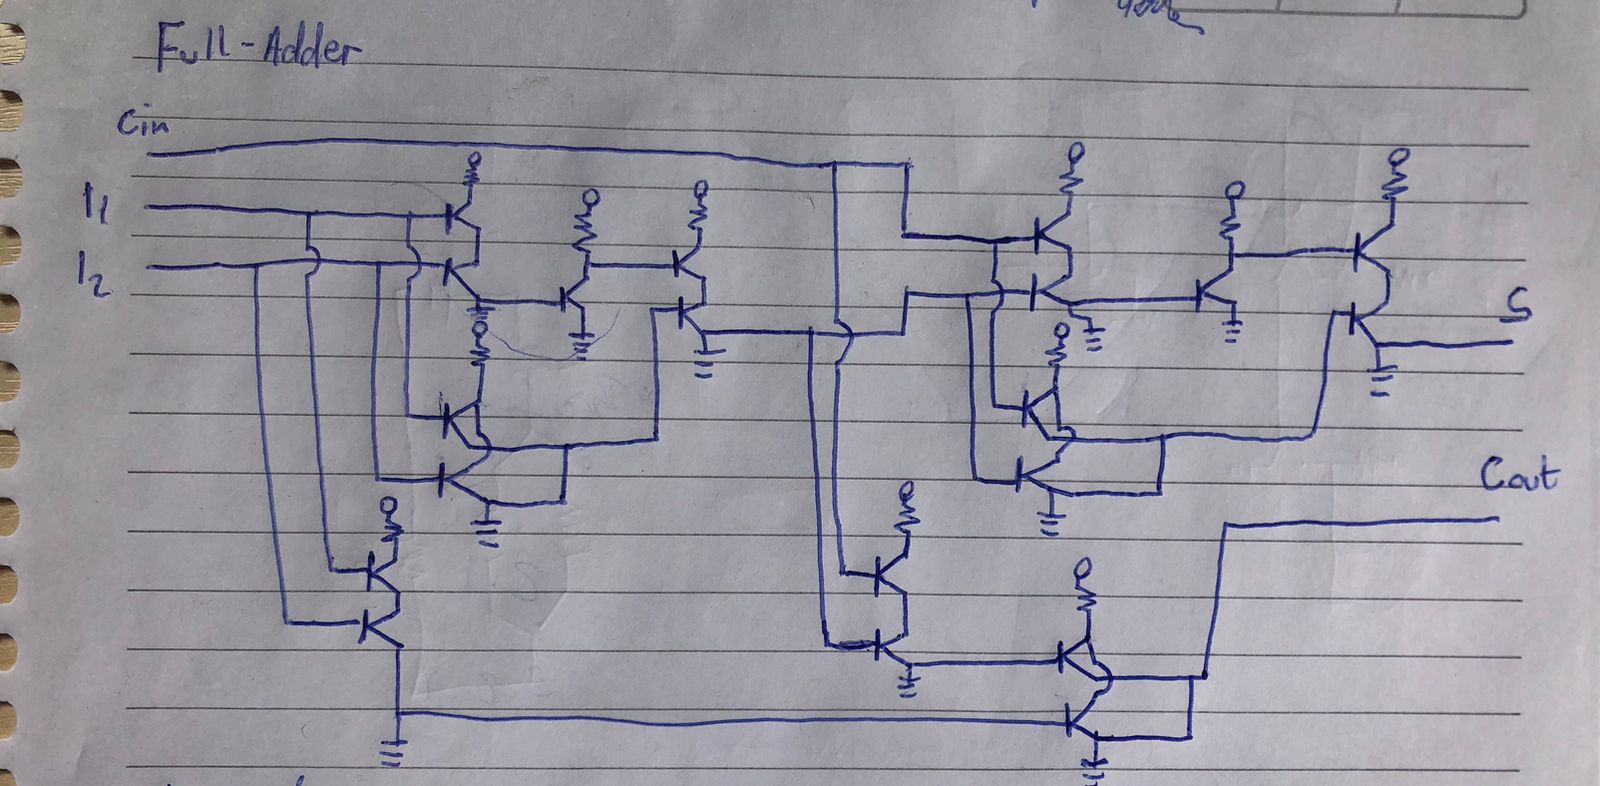 Full-Adder
Cin
I1
I2
S
Cout